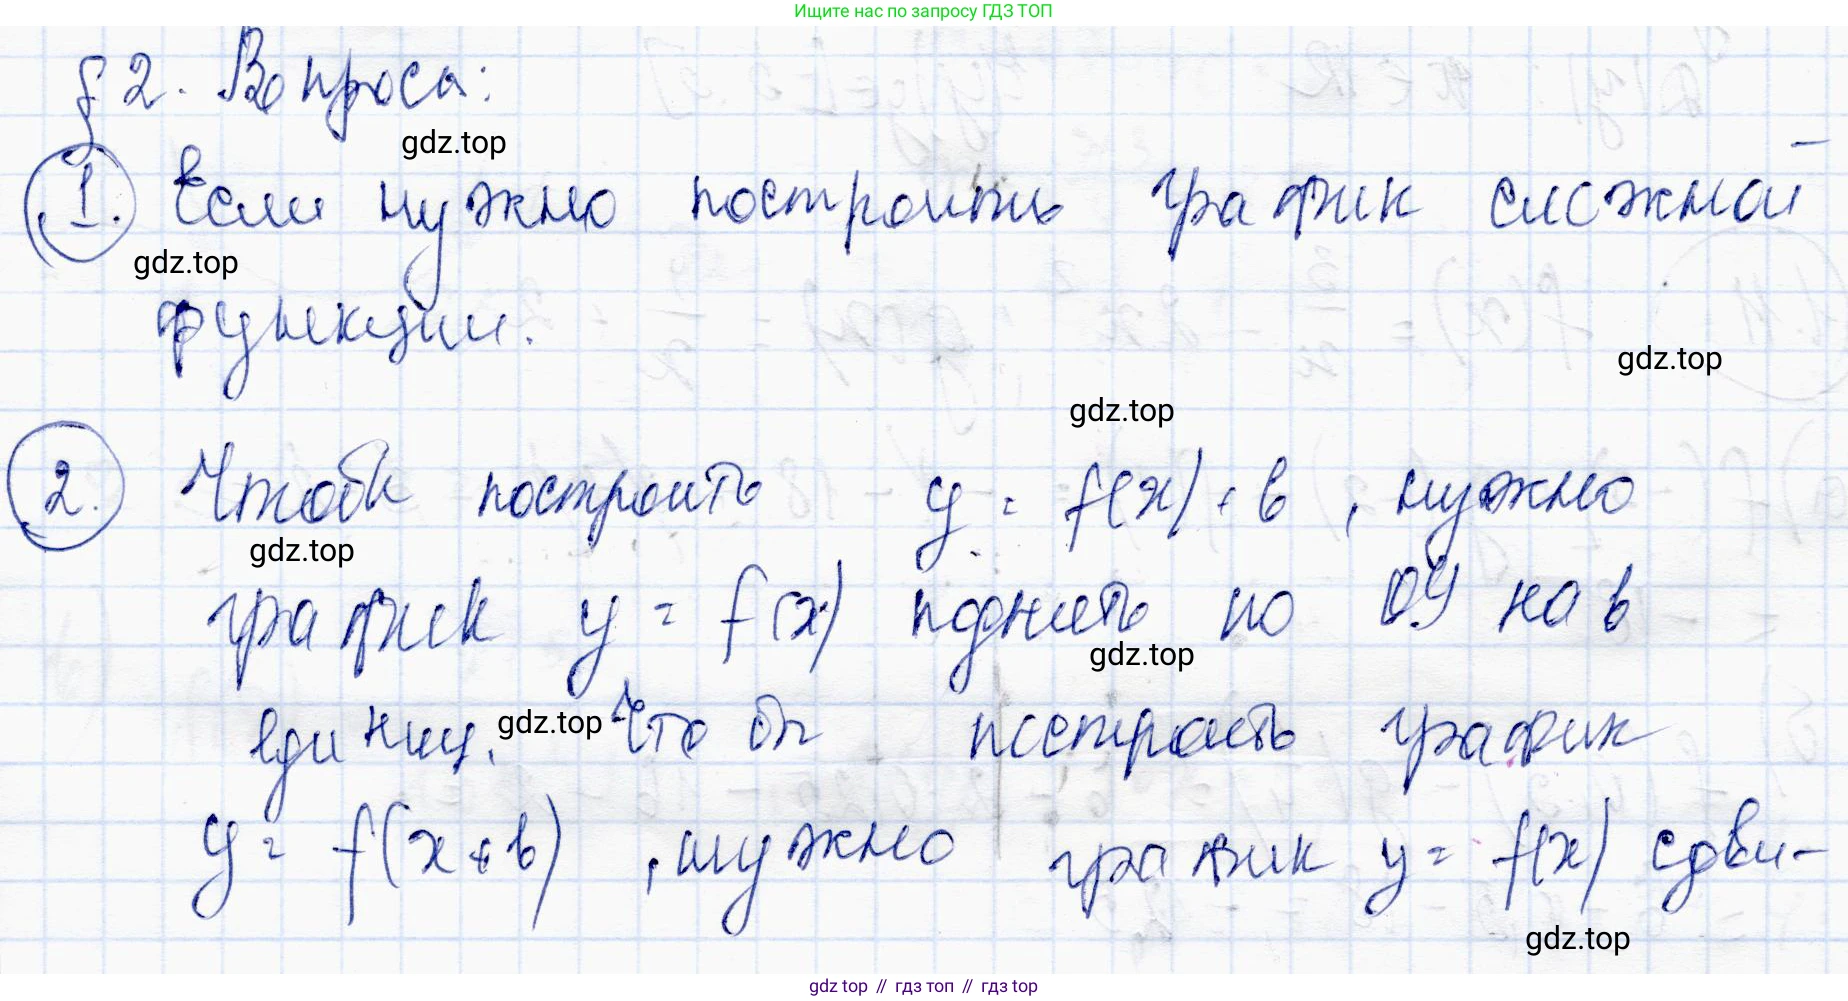 Ищите нас по запросу ГДЗ ТОП
§ 2. Вопроса:
gdz.top
1. Если нужно построить график сложной
gdz.top
функции.
gdz.top
gdz.top
2. Чтобы построить y = f(x) + b, нужно
gdz.top
график y = f(x) поднять по ОУ на b
gdz.top
единиц. Чтобы построить график
gdz.top
y = f(x+b), нужно график y = f(x) сдви-
gdz.top
gdz top // гдз топ // gdz top